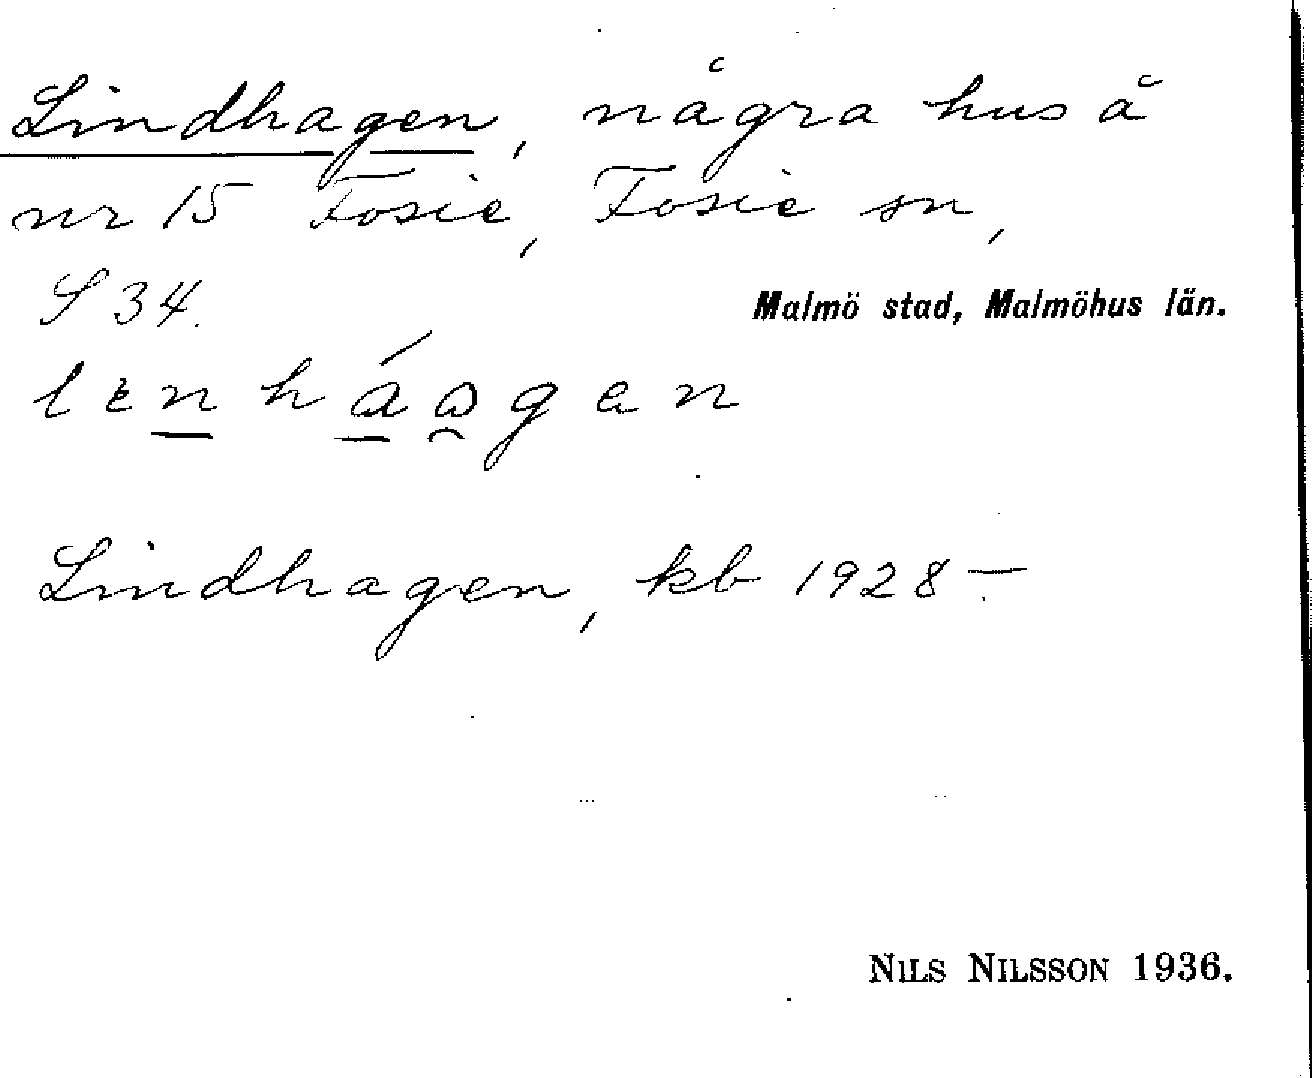 Lindhagen, några hus å
nr 15 Fosie, Fosie sn,
S 34.
Malmö stad, Malmöhus län.
Lindhagen, kb 1928—
NILS NILSSON 1936.